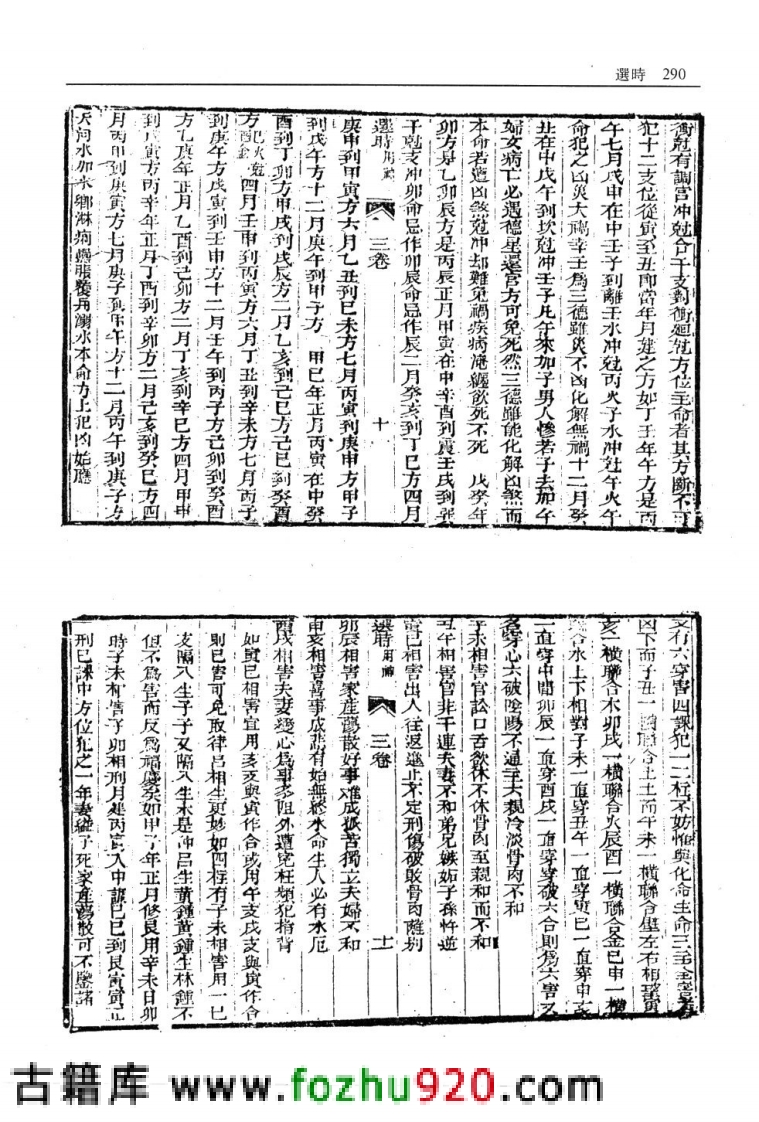 選時 290
衝尅有調宮冲尅合干支對衝廻尅方位主命者其方斷不可
犯十二支位從寅至丑即當年月建之方如丁壬年午方是丙
午七月戊申在中壬子到離壬水冲尅丙火子水冲尅午火午
命犯之凶災大禍辛壬為三德雖災不凶化解無禍十二月癸
丑在中戊午到坎尅冲壬子凡午來加子男人慘若子去加午
婦女病亡必遇德星還宮方可免死然三德雖能化解凶煞而
本命若遭凶煞尅冲却難免禍疾病淹纏飲死不死 戊癸年
卯方是乙卯辰方是丙辰正月甲寅在中辛酉到震壬戌到巽
干尅支冲卯命忌作卯辰命忌作辰二月癸亥到丁巳方四月
選時用晰 三卷 十
庚申到甲寅方六月乙丑到己未方七月丙寅到庚申方甲子
到戊午方十二月庚午到甲子方 甲己年正月丙寅在中癸
酉到丁卯方甲戌到戊辰方二月乙亥到己巳方己巳到癸酉
方 四月壬申到丙寅方六月丁丑到辛未方七月丙子
到庚午方戊寅到壬申方十二月壬午到丙子方己卯到癸酉
方乙庚年正月乙酉到己卯方二月丁亥到辛巳方四月甲申
到戊寅方丙辛年正月丁酉到辛卯方二月己亥到癸巳方四
月丙申到庚寅方七月庚子到甲午方十二月丙午到庚子方
天河水加水鄉淋 水本命方上犯凶始應
又有六穿害四課犯一二柱不妨惟與化命生命三
凶下而子丑一橫聯合土上而午未一橫聯合 左右相 寅
亥一橫聯合木卯戌一橫聯合火辰酉一橫聯合金巳申一橫
聯合水上下相對子未一直穿丑午一直穿寅巳一直穿申亥
一直穿中間卯辰一直穿酉戌一直穿穿破六合則為六害又
名穿心六破陰陽不通主六親冷淡骨肉不和
子未相害官訟口舌欲休不休骨肉至親和而不和
丑午相害官非干連夫妻不和弟兄嫉妬子孫忤逆
寅巳相害出人往返進止不定刑傷破敗骨肉離別
選時用晰 三卷 十一
卯辰相害家產蕩散好事难成孤苦獨立夫婦不和
申亥相害喜事成悲有始無終水命生人必有水厄
酉戌相害夫妻變心爲事多阻外遭寃枉類犯指背
如寅巳相害宜用亥支與寅作合或用午支戌支與寅作合
則巳害可免取律呂相生更妙如四柱有子未相害用一巳
支隔八生子子又隔八生未是冲呂生黃鍾黃鍾生林鍾不
但不爲害而反爲福慶矣如甲子年正月修艮用辛未日卯
時子未相害子卯相刑月建丙寅入中調己巳到艮寅寅
刑巳課中方位犯之一年妻縊子死家產蕩散可不鑒諸
古籍库 www.fozhu920.com